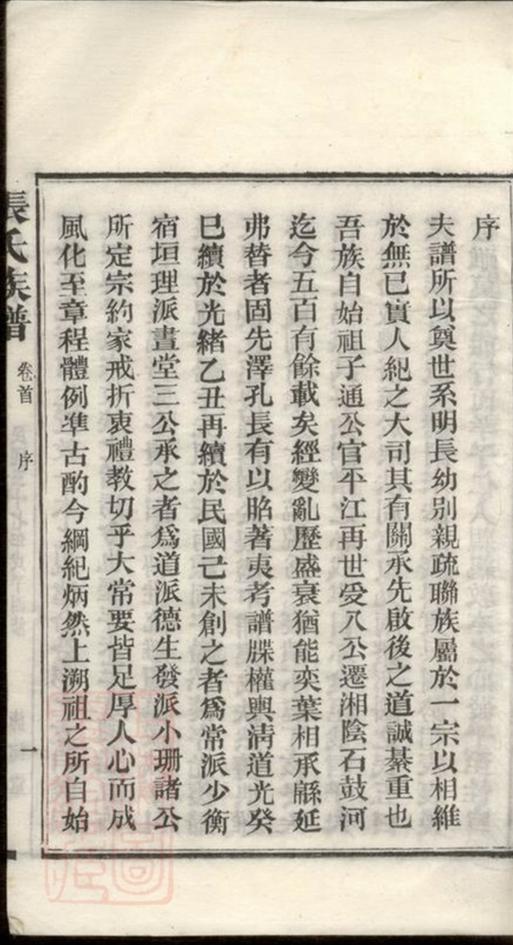 序
夫譜所以奠世系明長幼別親疏聯族屬於一宗以相維
於無已實人紀之大司其有關承先啟後之道誠綦重也
吾族自始祖子通公官平江再世受八公遷湘陰石鼓河
迄今五百有餘載矣經變亂歷盛衰猶能奕葉相承緜延
弗替者固先澤孔長有以昭著夷考譜牒權輿淸道光癸
巳續於光緒乙丑再續於民國己未創之者爲常派少衡
宿垣理派晝堂三公承之者爲道派德生發派小珊諸公
所定宗約家戒折衷禮教切乎大常要皆足厚人心而成
風化至章程體例凖古酌今綱紀炳然上溯祖之所自始
張氏族譜
卷首
序
一